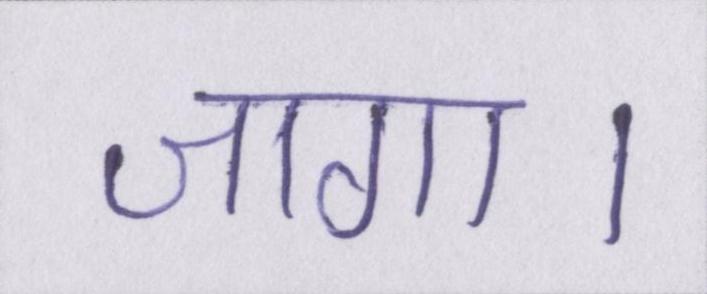 जागा।